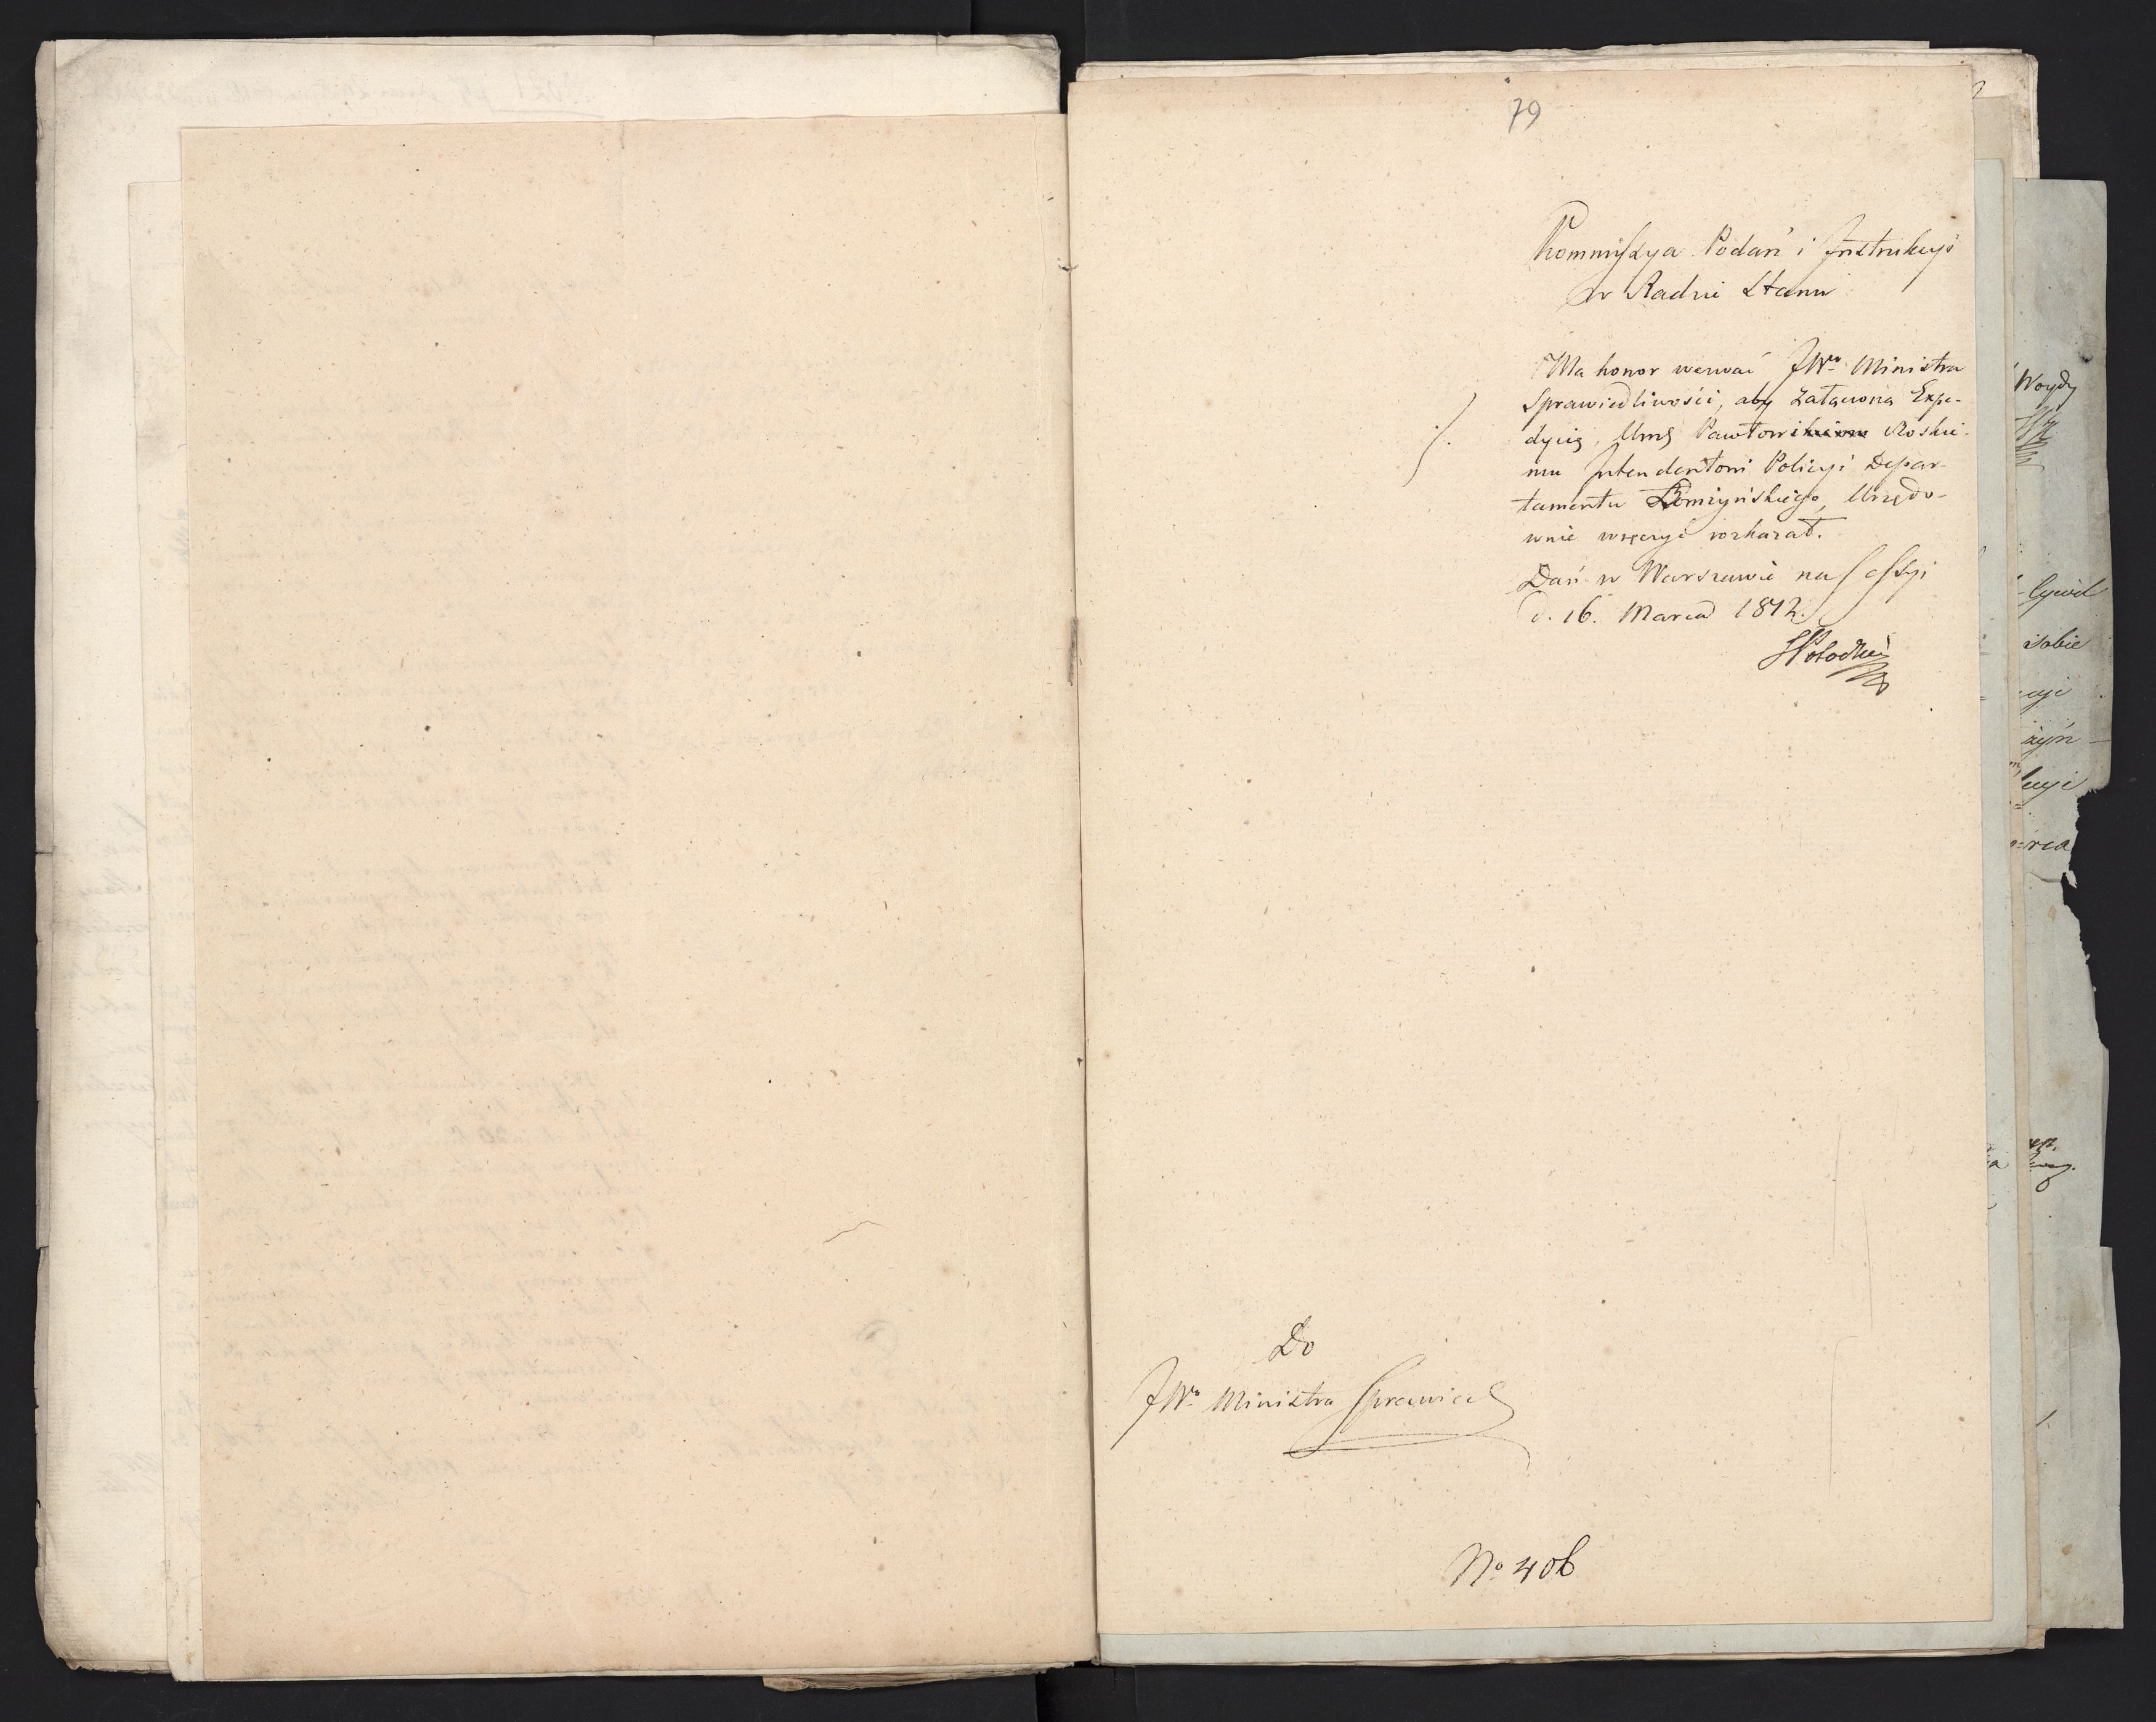 79
Kommissya Podań i Instrukcyi
w Radzie Stanu
Ma honor wezwać JWo Ministra
Sprawiedliwości, aby załączoną Expe-
dycią, Umg Pawłowskiemu Roskie-
mu Intendentowi Policyi Depar-
tamentu Łomżyńskiego, Urzędo-
wnie wręczyć rozkazał.
Dań w Warszawie na Sessyi
d. 16. Marca 1812.
Do
JWo Ministra Sprawied
No 406
Woydy
Cywil
isobie
cyi
żyń
kcyi
rca